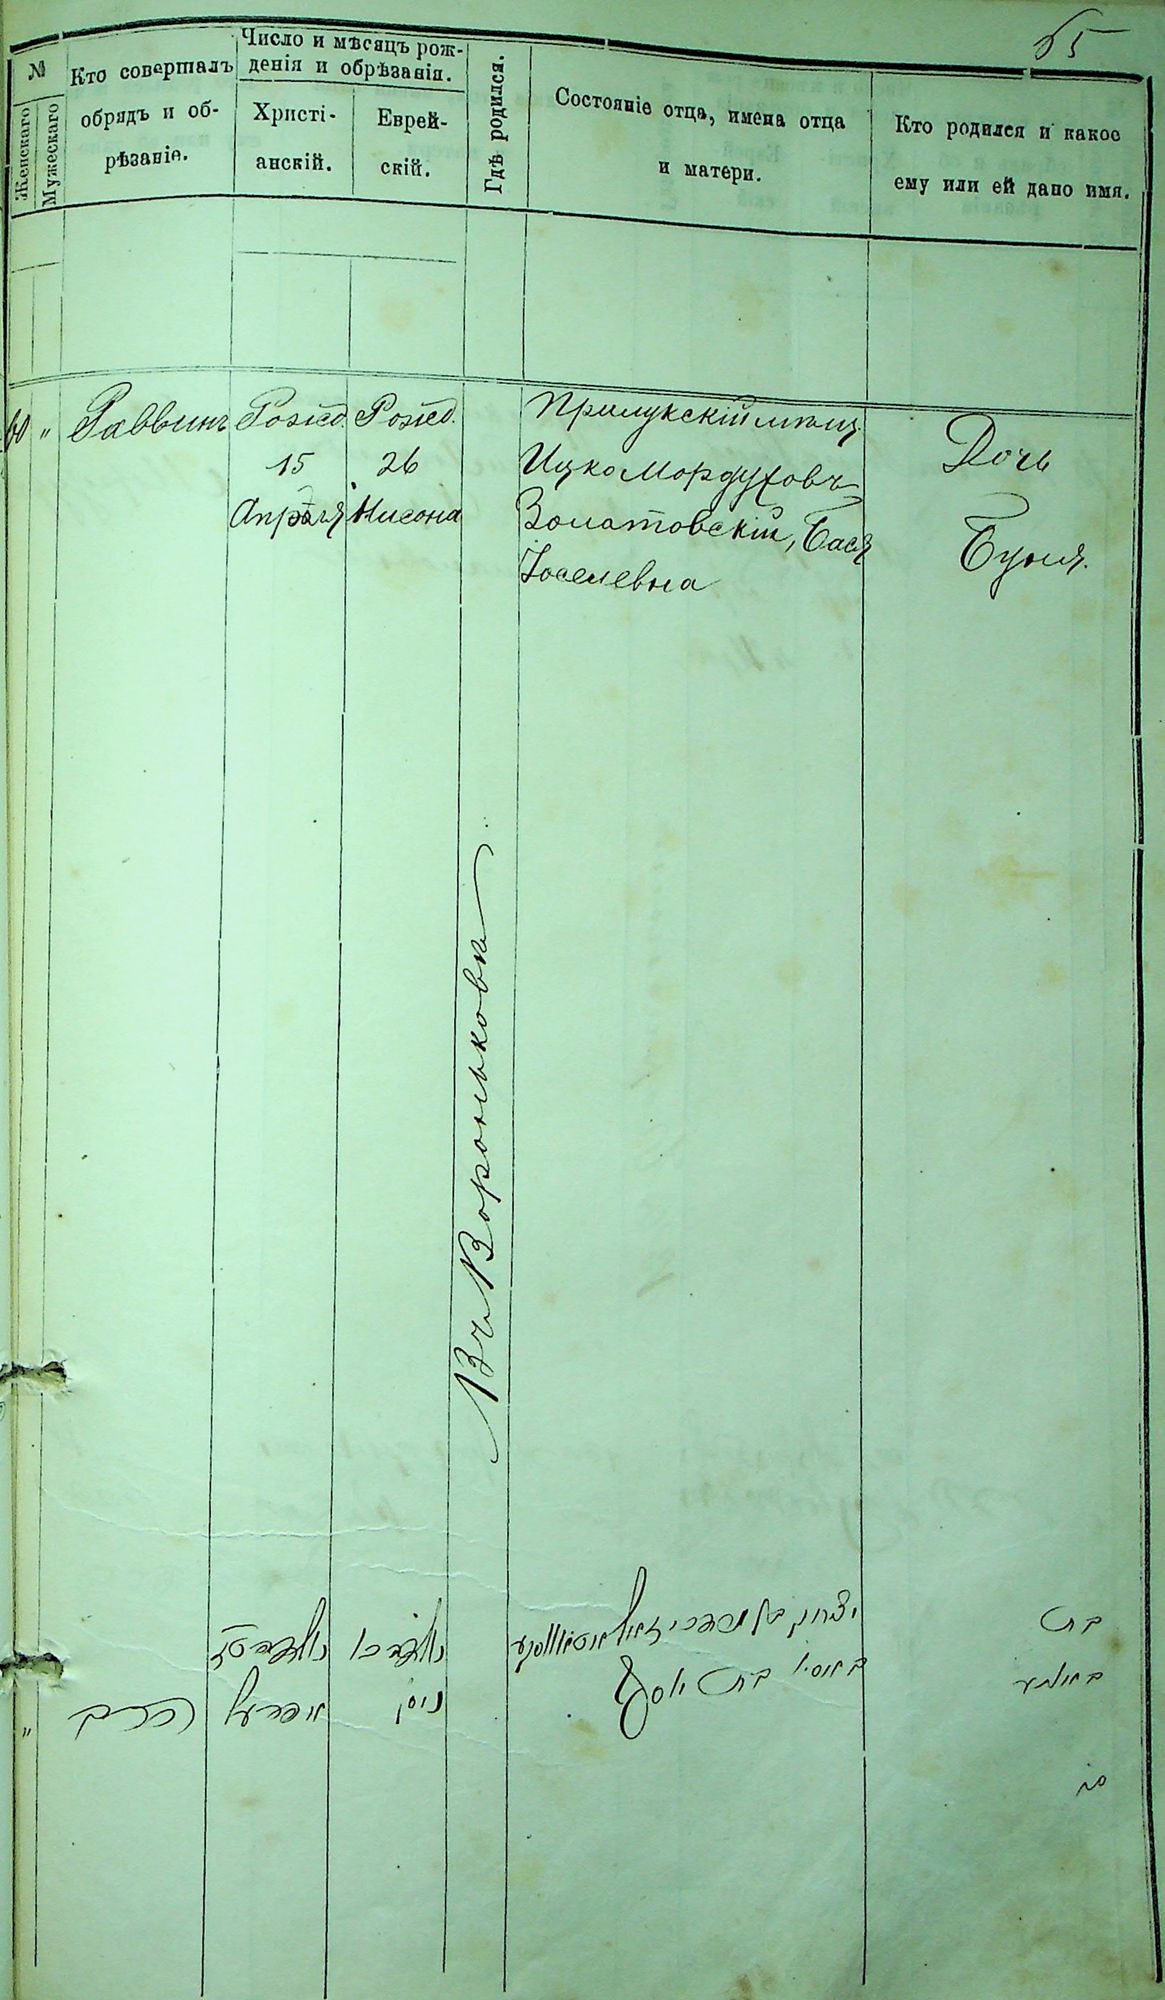 65
№
Женскаго
Мужескаго
Кто совершалъ
обрядъ и об-
рѣзаніе.
Число и мѣсяцъ рож-
денія и обрѣзанія.
Христі-
анскій.
Еврей-
скій.
Гдѣ родился.
Состояніе отца, имена отца
и матери.
Кто родился и какое
ему или ей дано имя.
60 "
Раввинъ
Рожд.
15
Апрѣля
Рожд.
26
Нисона
Въ Вороньковѣ
Прилукскій мѣщ.
Ицко Мордуховъ
Золатовскій, Бася
Іоселевна
Дочь
Буня.
"
הרב
נולדה טו
אפריל
נולדה כו
ניסן
יצחק בן מרדכי
באסי בת יוסף
בת